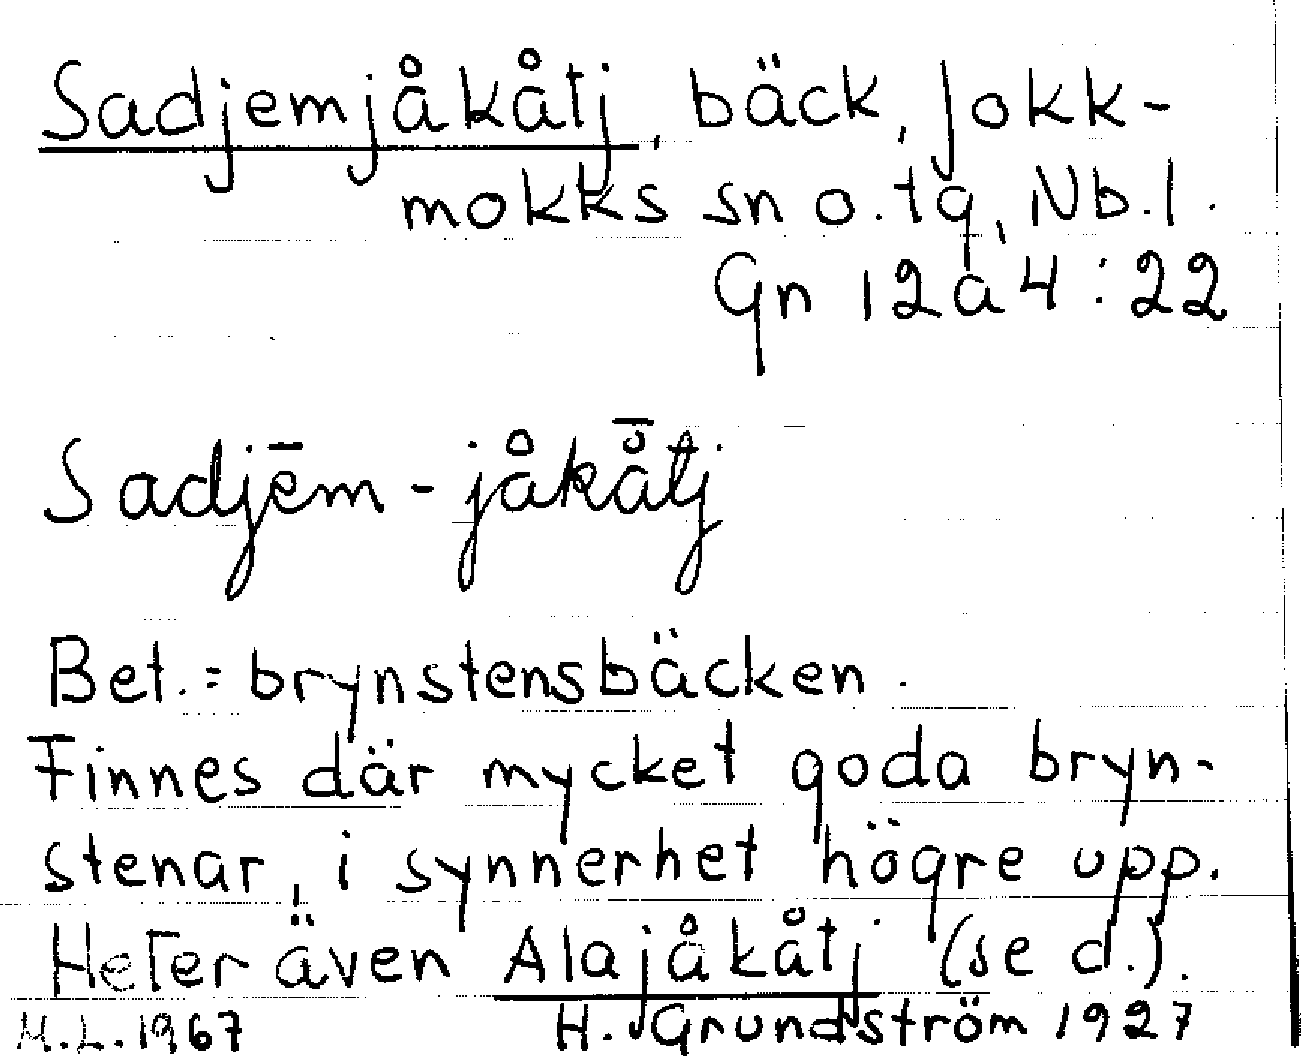 Sadjemjåkåtj, bäck, Jokk-
mokks sn o. tg, Nb. l.
Gn 12 a 4 : 22
Sadjēm - jåkå̄tj
Bet. = brynstensbäcken.
Finnes där mycket goda bryn-
stenar, i synnerhet högre upp.
Heter även Alajåkåtj (se d.).
M.L. 1967 H. Grundström 1927